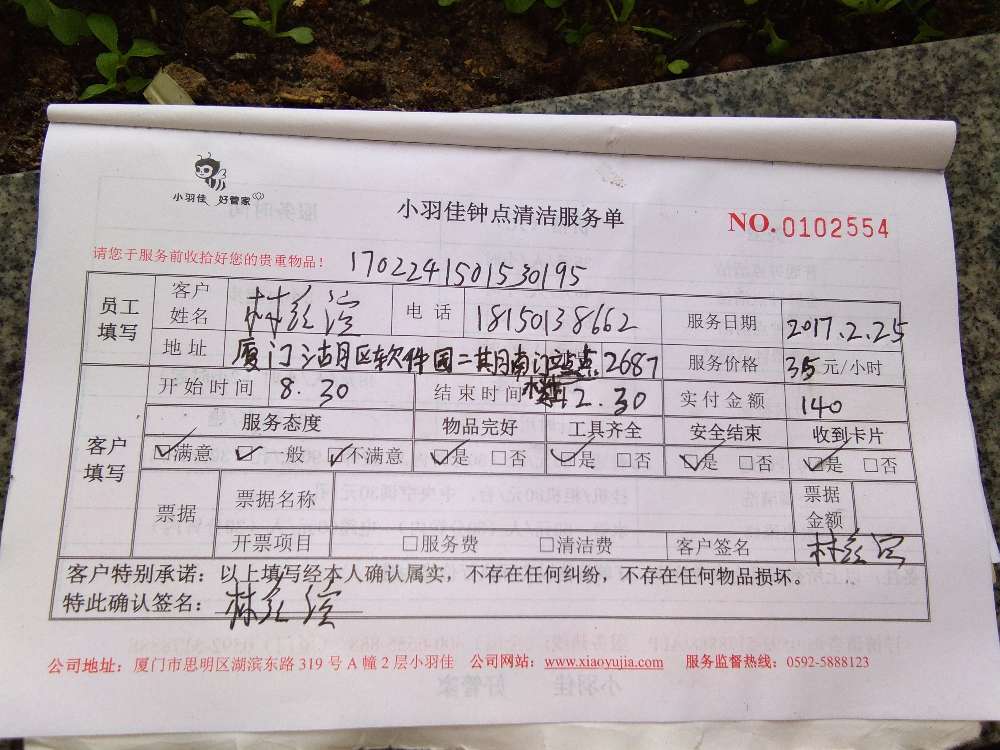 小羽佳 好管家
小羽佳钟点清洁服务单
NO.0102554
请您于服务前收拾好您的贵重物品！ 1702241501530195
员工填写 客户姓名 林 电话 18150138662 服务日期 2017.2.25
地址 厦门 区软件园二期南门 2687 服务价格 35元/小时
客户填写 开始时间 8.30 结束时间 12.30 实付金额 140
服务态度 物品完好 工具齐全 安全结束 收到卡片
☑满意 ☑一般 ☑不满意 ☑是 □否 ☑是 □否 ☑是 □否 ☑是 □否
票据 票据名称 票据金额
开票项目 □服务费 □清洁费 客户签名 林
客户特别承诺：以上填写经本人确认属实，不存在任何纠纷，不存在任何物品损坏。
特此确认签名：林
公司地址：厦门市思明区湖滨东路 319 号 A 幢 2 层小羽佳 公司网站：www.xiaoyujia.com 服务监督热线：0592-5888123